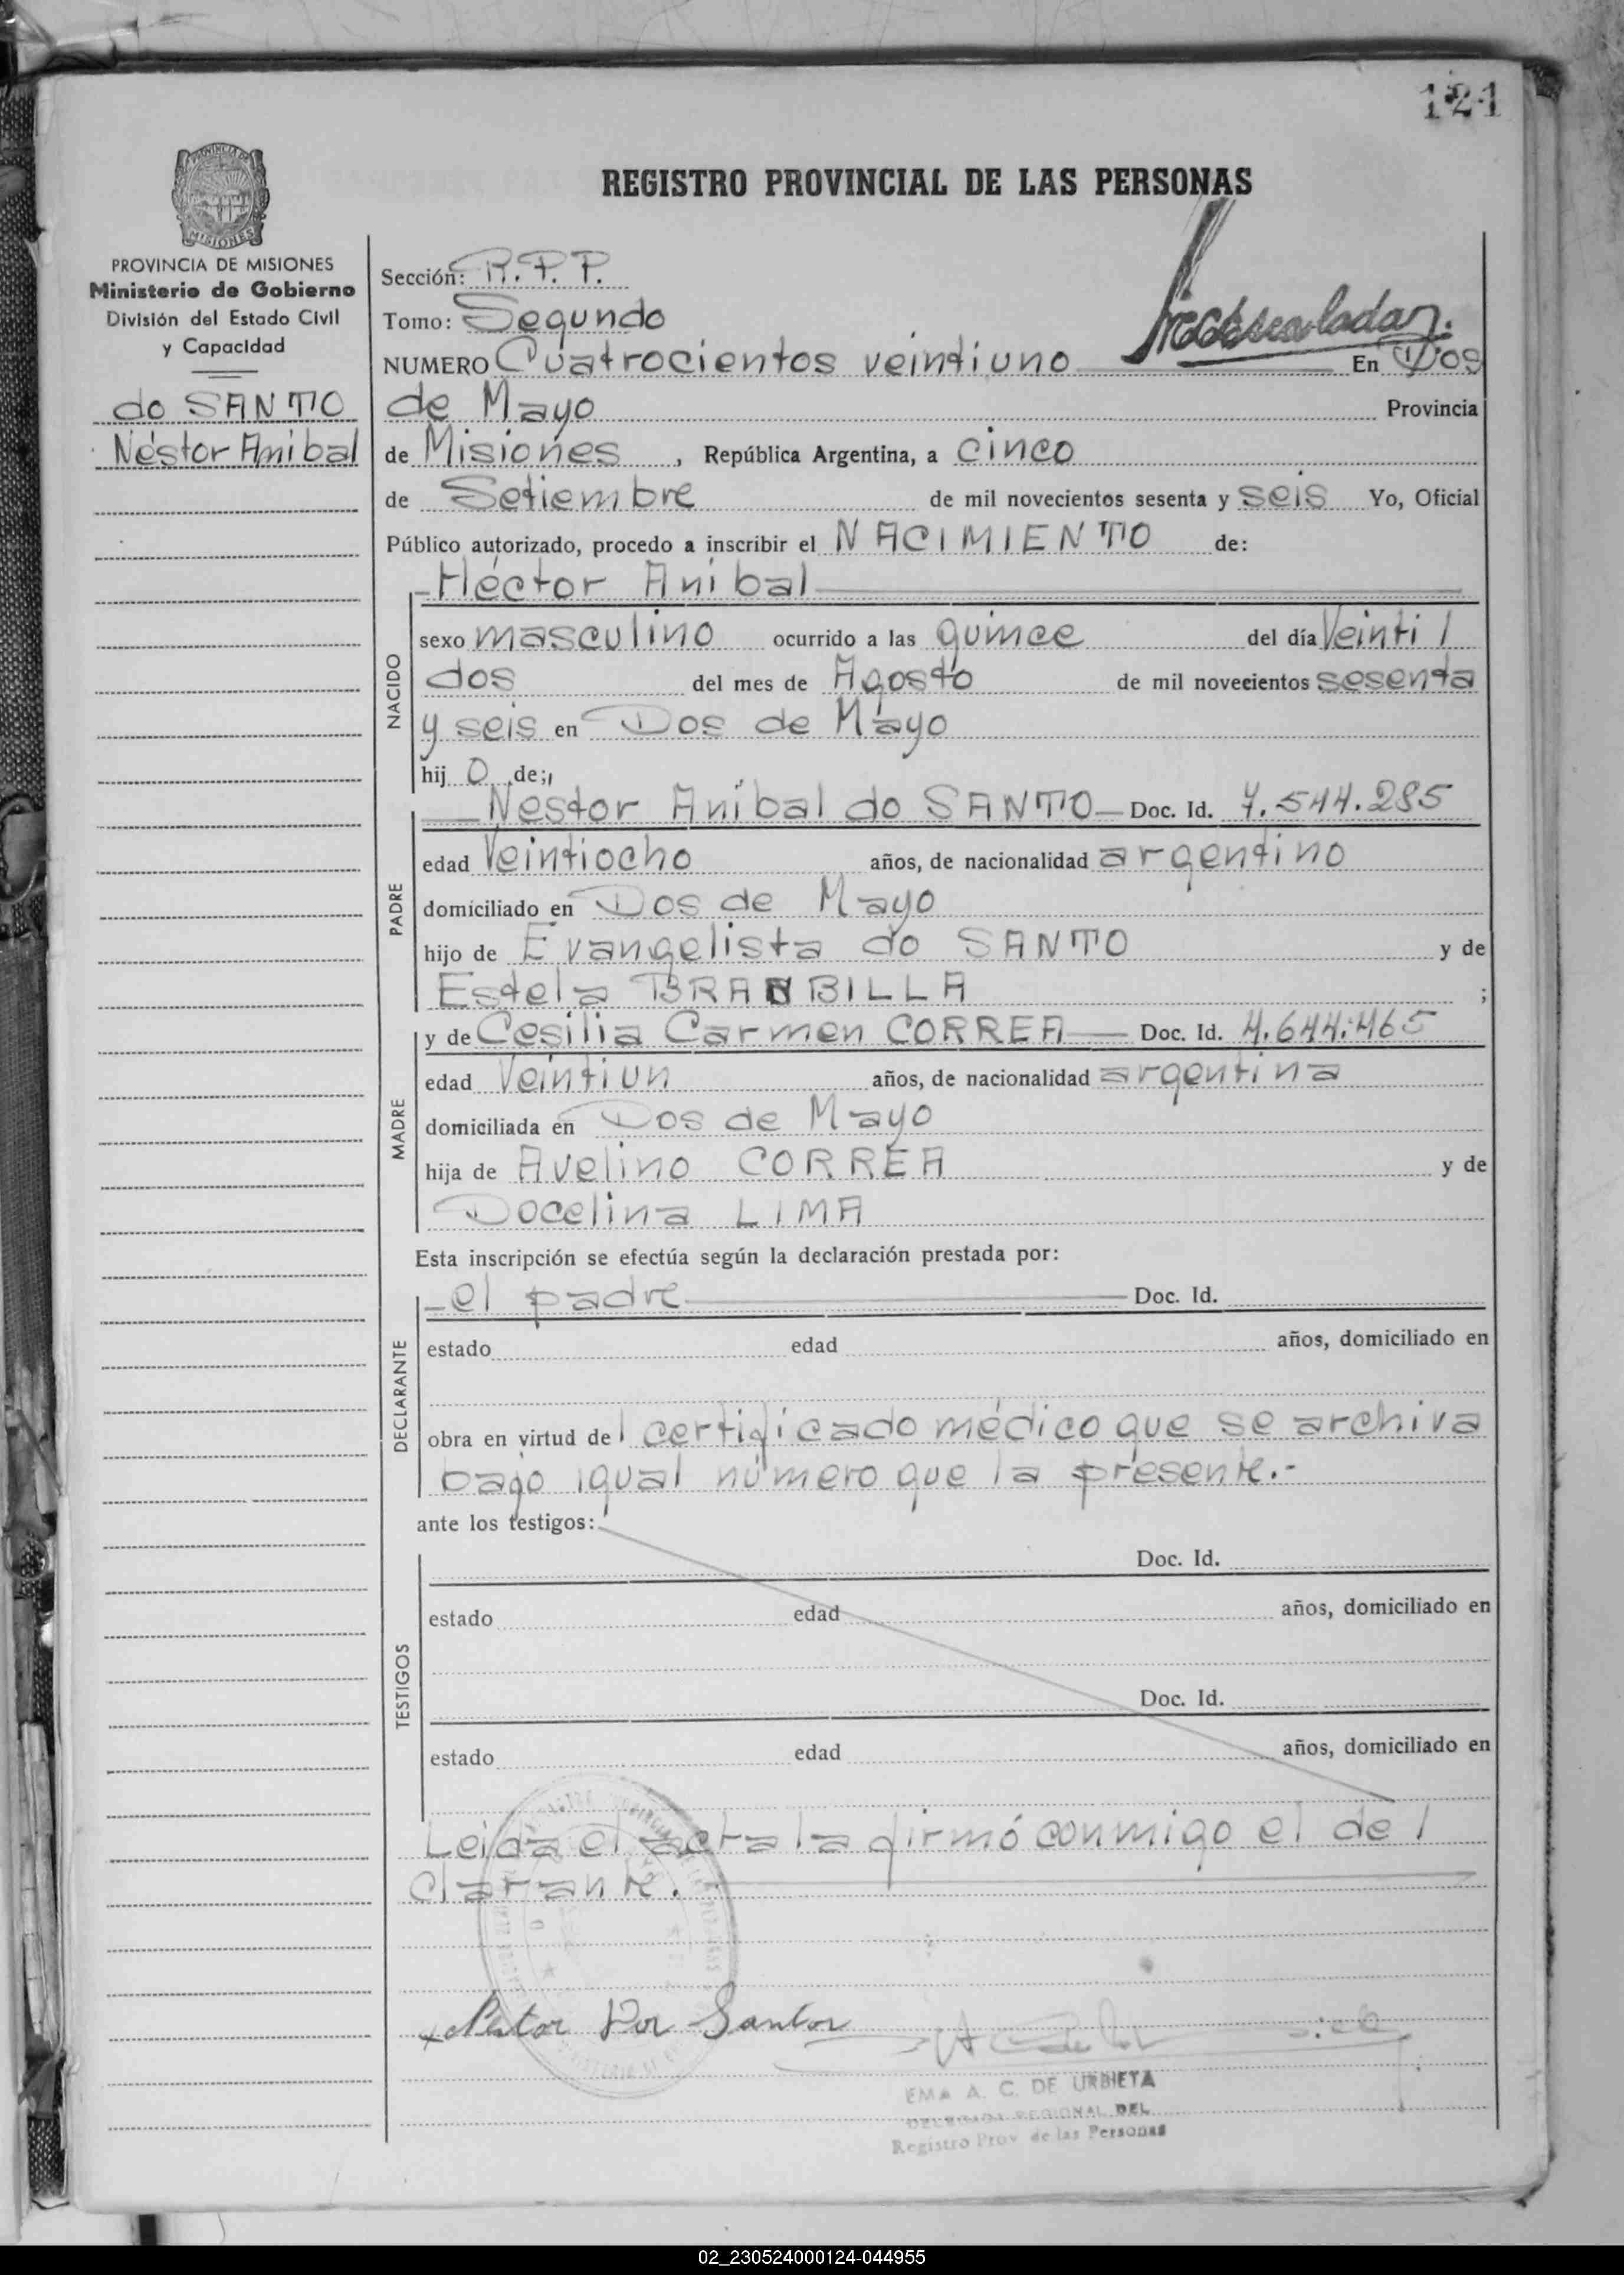 121
REGISTRO PROVINCIAL DE LAS PERSONAS
PROVINCIA DE MISIONES
Ministerio de Gobierno
División del Estado Civil
y Capacidad
do SANTO
Néstor Anibal
Sección: R.P.P.
Tomo: Segundo
NUMERO Cuatrocientos veintiuno En Dos
de Mayo Provincia
de Misiones, República Argentina, a cinco
de Setiembre de mil novecientos sesenta y seis Yo, Oficial
Público autorizado, procedo a inscribir el NACIMIENTO de:
NACIDO
-Héctor Anibal
sexo masculino ocurrido a las quince del día Veinti/
dos del mes de Agosto de mil novecientos sesenta
y seis en Dos de Mayo
hij o de;
PADRE
Nestor Anibal do SANTO- Doc. Id. 7.544.285
edad Veintiocho años, de nacionalidad argentino
domiciliado en Dos de Mayo
hijo de Evangelista do SANTO y de
Estela BRANBILLA ;
MADRE
y de Cesilia Carmen CORREA- Doc. Id. 4.644.465
edad Veintiun años, de nacionalidad argentina
domiciliada en Dos de Mayo
hija de Avelino CORREA y de
Docelina LIMA
Esta inscripción se efectúa según la declaración prestada por:
DECLARANTE
-el padre Doc. Id.
estado edad años, domiciliado en
obra en virtud del certificado médico que se archiva
bajo igual número que la presente.-
ante los testigos:
TESTIGOS
Doc. Id.
estado edad años, domiciliado en
Doc. Id.
estado edad años, domiciliado en
Leida el acta la firmó conmigo el de/
clarante.
Nestor Dos Santos
EMA A. C. DE URBIETA
DELEGADA REGIONAL DEL
Registro Prov de las Personas
02_230524000124-044955